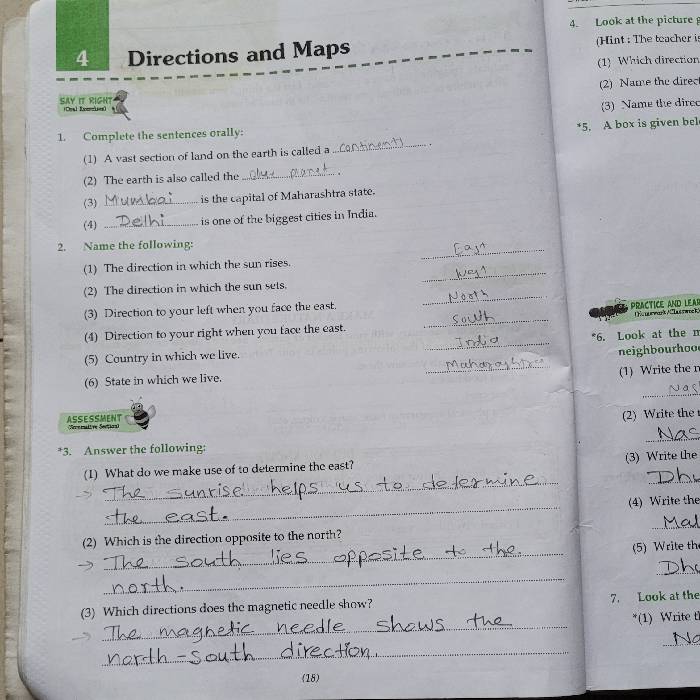 4
Directions and Maps
SAY IT RIGHT
(Oral Exercises)
1. Complete the sentences orally:
(1) A vast section of land on the earth is called a continents.
(2) The earth is also called the blue planet.
(3) Mumbai is the capital of Maharashtra state.
(4) Delhi is one of the biggest cities in India.
2. Name the following:
(1) The direction in which the sun rises. East
(2) The direction in which the sun sets. West
(3) Direction to your left when you face the east. North
(4) Direction to your right when you face the east. South
(5) Country in which we live. India
(6) State in which we live. Maharashtra
ASSESSMENT
(Summative Section)
*3. Answer the following:
(1) What do we make use of to determine the east?
→ The sunrise helps us to determine
the east.
(2) Which is the direction opposite to the north?
→ The south lies opposite to the
north.
(3) Which directions does the magnetic needle show?
→ The magnetic needle shows the
north-south direction.
(18)
4. Look at the picture
(Hint : The teacher
(1) Which direction
(2) Name the
(3) Name the
*5. A box is given
PRACTICE AND
*6. Look at the
(1) Write the
(2) Write the
(3) Write the
(4) Write the
(5) Write the
7. Look at the
*(1) Write